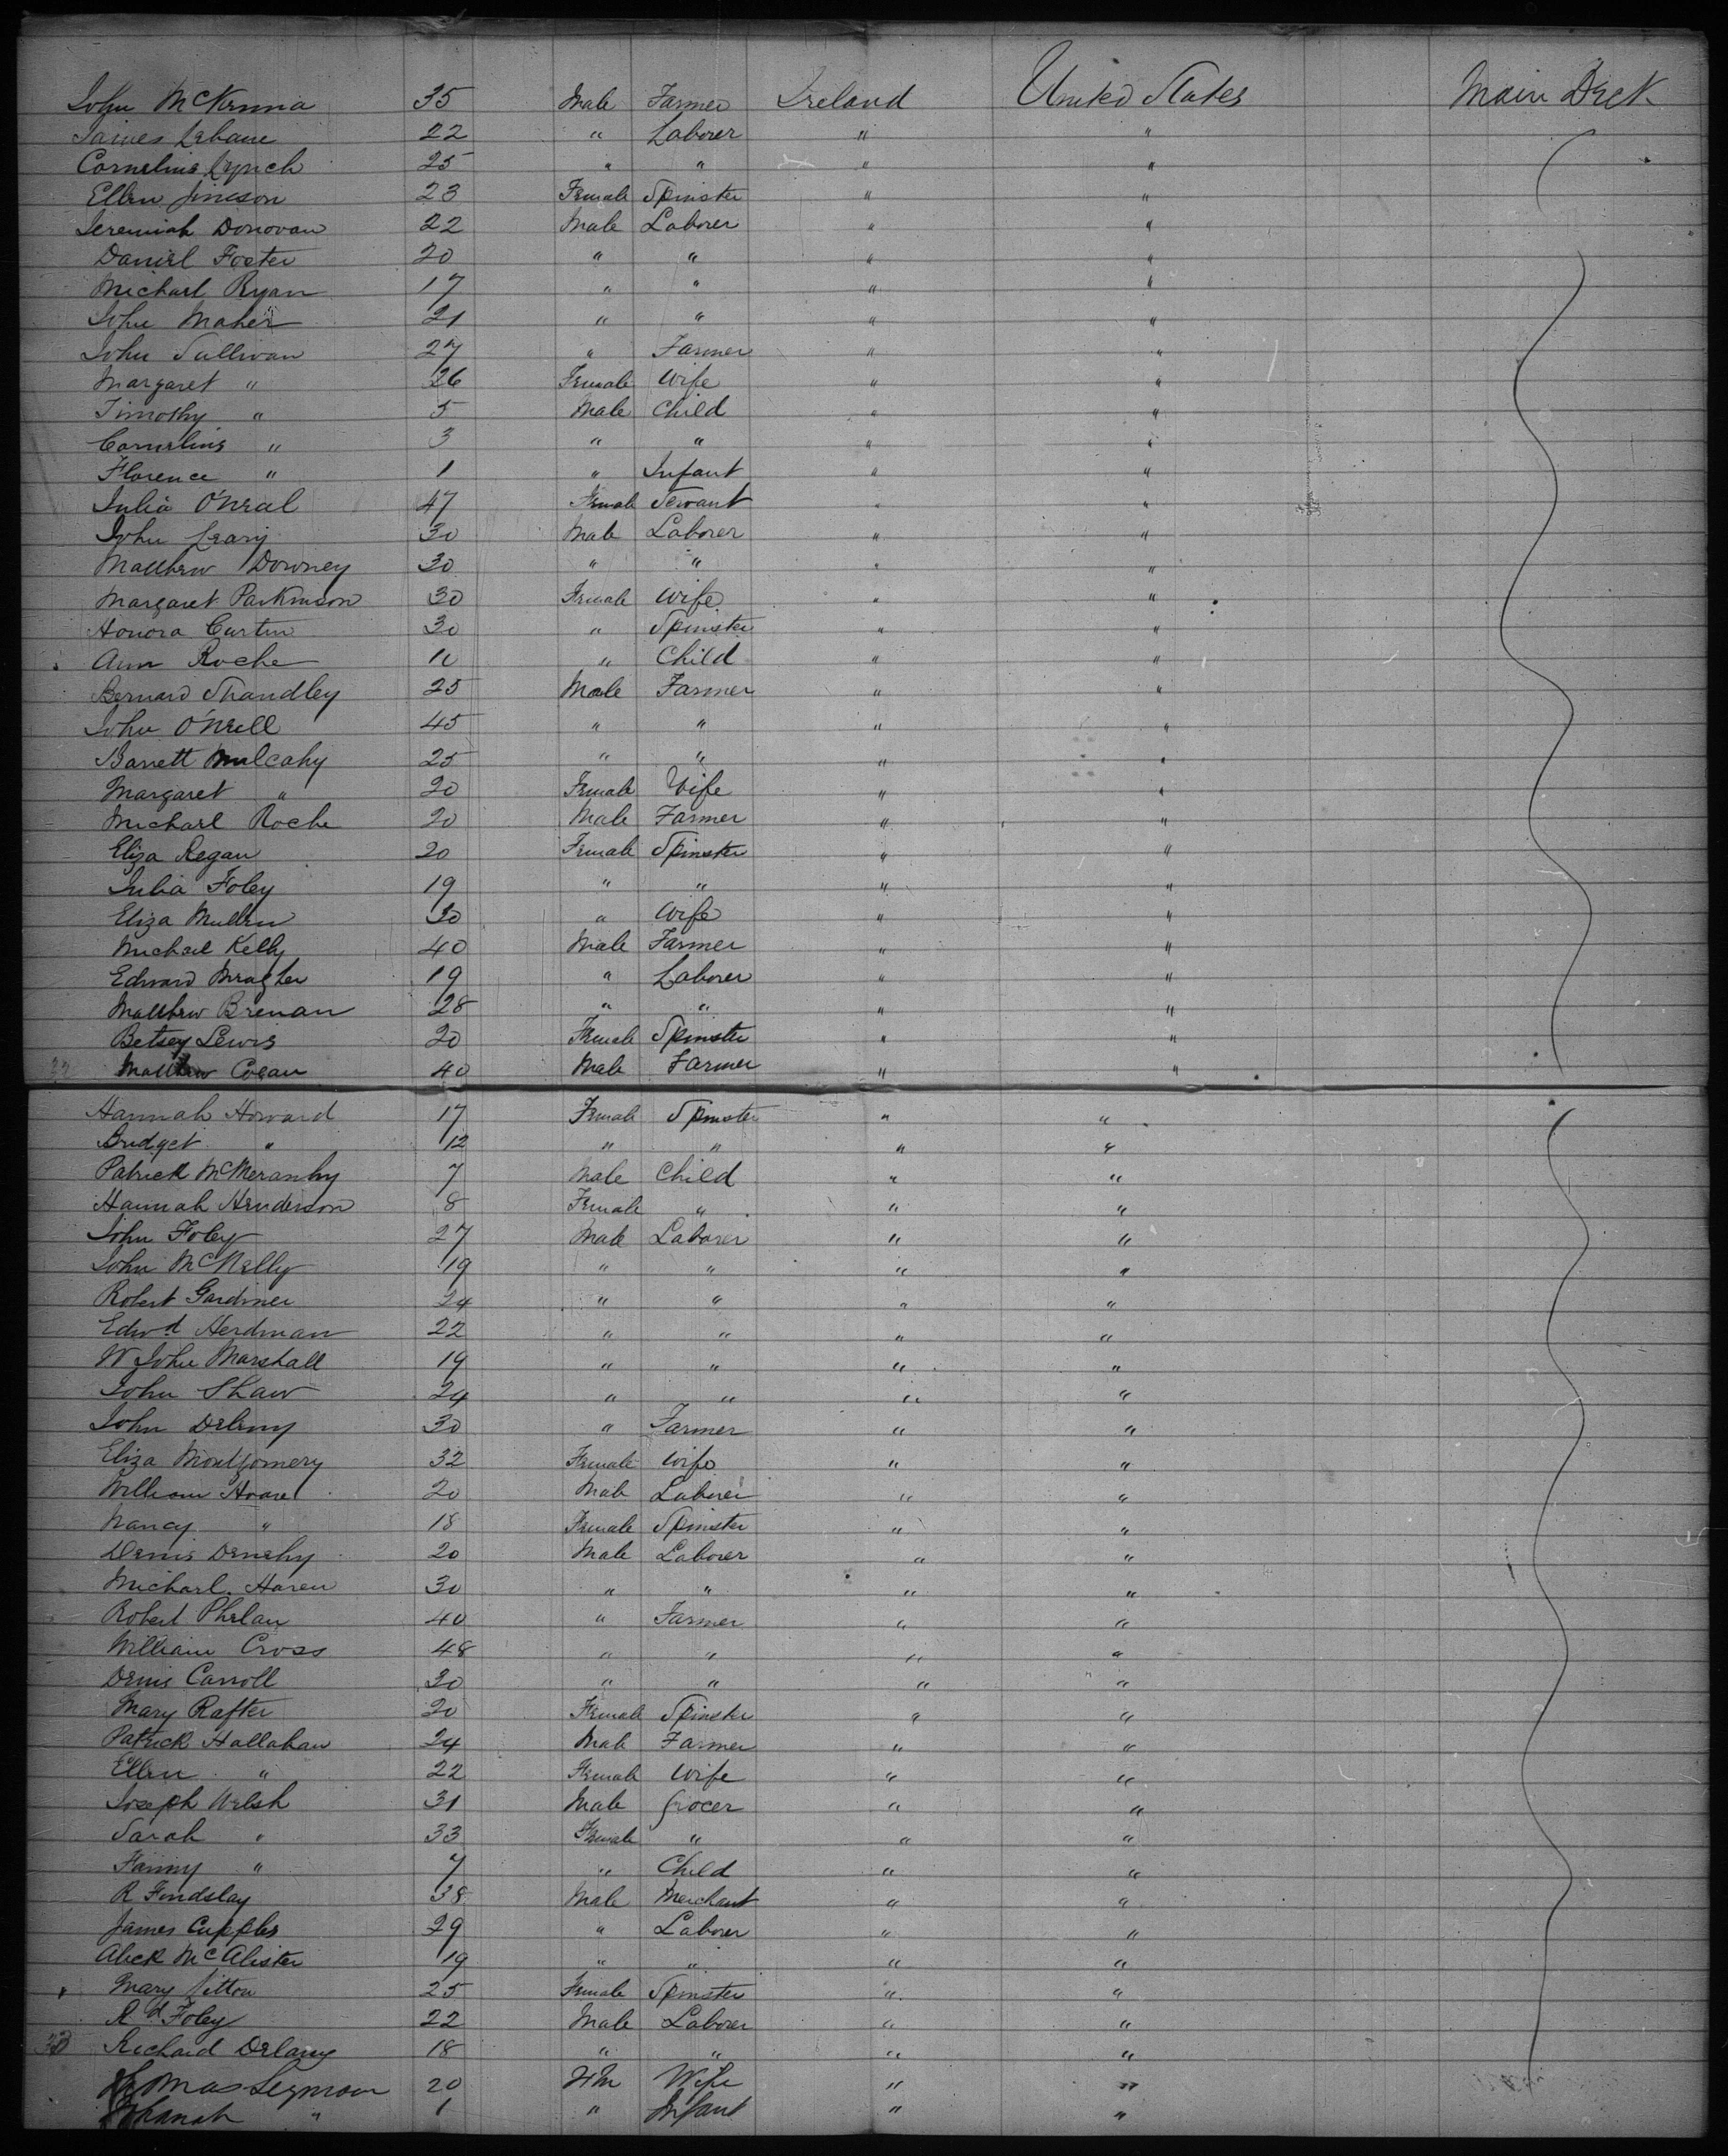 John McKenna 35 Male Farmer Ireland United States Main Deck
James Lehane 22 " Laborer " "
Cornelius Lynch 25 " " " "
Ellen Jinison 23 Female Spinster " "
Jeremiah Donovan 22 Male Laborer " "
Daniel Foster 20 " " " "
Michael Ryan 17 " " " "
John Maher 21 " " " "
John Sullivan 27 " Farmer " "
Margaret " 26 Female Wife " "
Timothy " 5 Male Child " "
Cornelius " 3 " " " "
Florence " 1 " Infant " "
Julia O'Neal 47 Female Servant " "
John Leary 30 Male Laborer " "
Matthew Downey 30 " " " "
Margaret Parkinson 30 Female Wife " "
Honora Curtin 30 " Spinster " "
Ann Roche 10 " Child " "
Bernard Standley 25 Male Farmer " "
John O'Neill 45 " " " "
Barrett Mulcahy 25 " " " "
Margaret " 20 Female Wife " "
Michael Roche 20 Male Farmer " "
Eliza Regan 20 Female Spinster " "
Julia Foley 19 " " " "
Eliza Mullen 30 " Wife " "
Michael Kelly 40 Male Farmer " "
Edward Meagher 19 " Laborer " "
Matthew Brenan 28 " " " "
Betsey Lewis 20 Female Spinster " "
Matthew Cogan 40 Male Farmer " "
Hannah Howard 17 Female Spinster " "
Bridget " 12 " " " "
Patrick 7 Male Child " "
Hannah Henderson 8 Female " " "
John Foley 27 Male Laborer " "
John McNelly 19 " " " "
Robert Gardiner 24 " " " "
Edwd Herdman 22 " " " "
W John Marshall 19 " " " "
John Shaw 24 " " " "
John Deleny 30 " Farmer " "
Eliza Montgomery 32 Female Wife " "
William Hoare 20 Male Laborer " "
Nancy " 18 Female Spinster " "
Denis Denehy 20 Male Laborer " "
Michael Haren 30 " " " "
Robert Phelan 40 " Farmer " "
William Cross 48 " " " "
Denis Carroll 30 " " " "
Mary Rafter 20 Female Spinster " "
Patrick Hallahan 24 Male Farmer " "
Ellen " 22 Female Wife " "
Joseph Welsh 31 Male Grocer " "
Sarah " 33 Female " " "
Fanny " 7 " Child " "
R Findslay 38 Male Merchant " "
James Cupples 29 " Laborer " "
Alick McAlister 19 " " " "
Mary Sitton 25 Female Spinster " "
Rd Foley 22 Male Laborer " "
Richard Delany 18 " " " "
Thomas Seymour 20 Fm Wife " "
Johanah " 1 " Infant " "